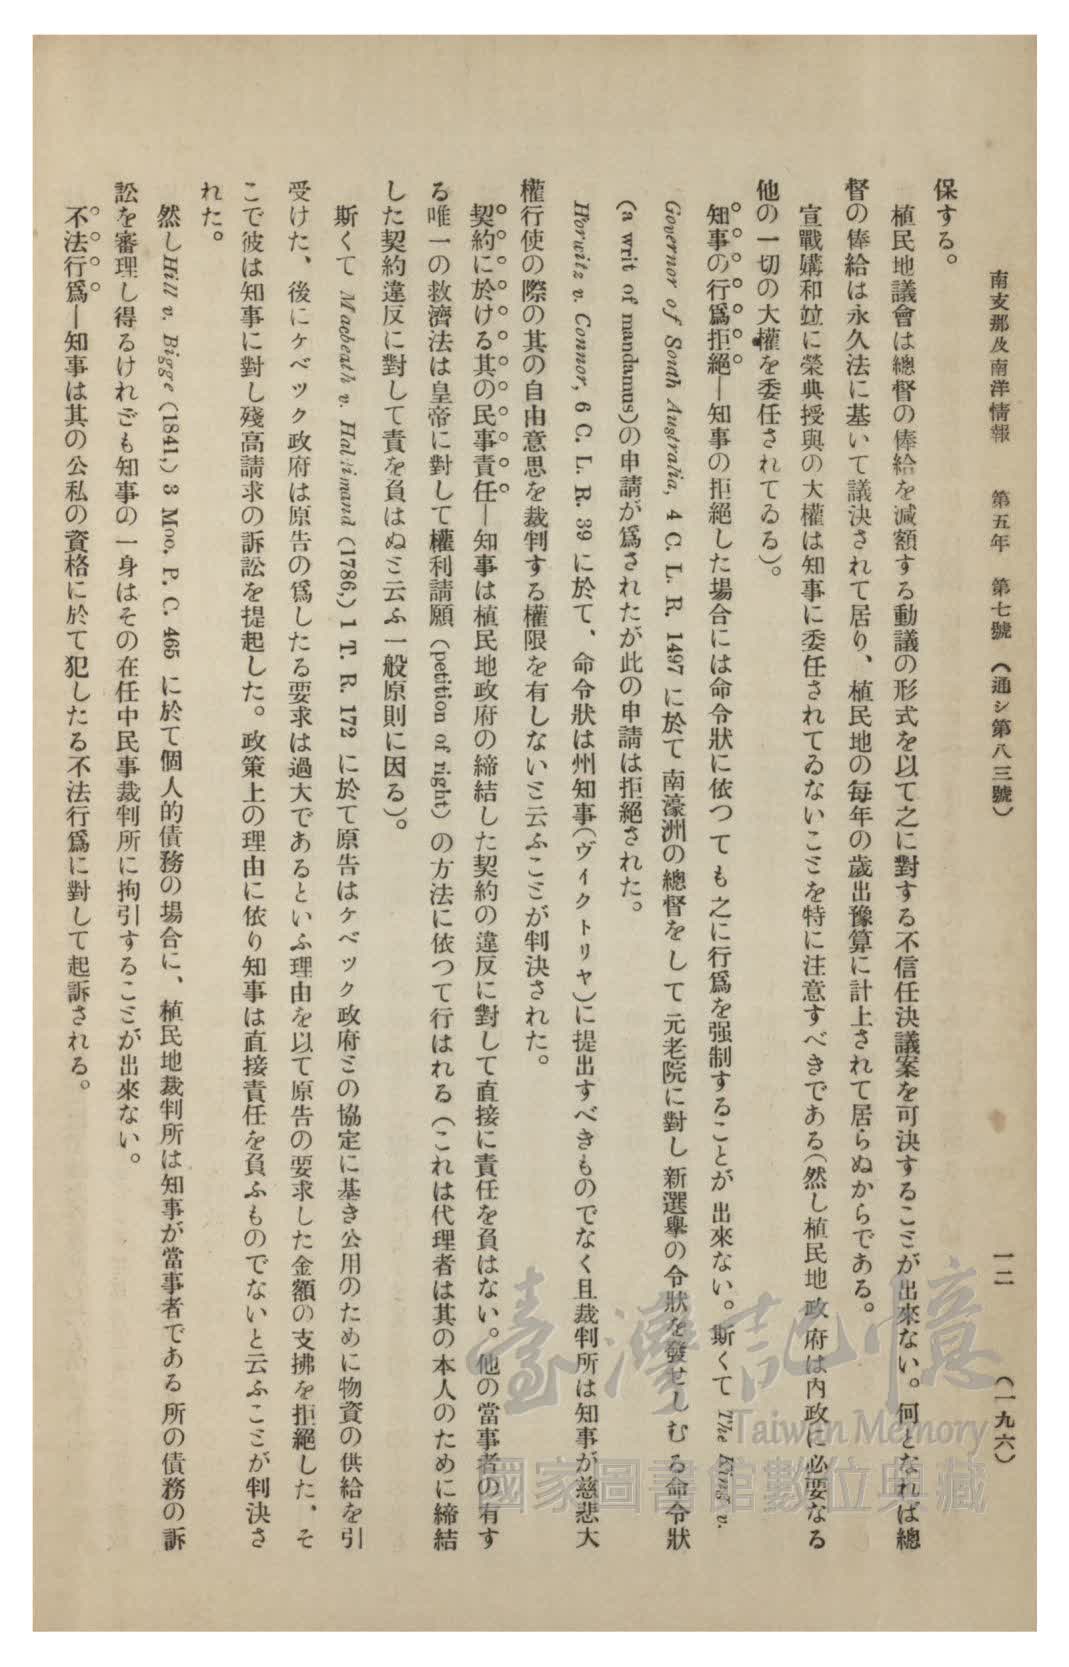 南支那及南洋情報　第五年　第七號（通シ第八三號）　一二　（一九六）
保する。
植民地議會は總督の俸給を減額する動議の形式を以て之に對する不信任決議案を可決することが出來ない。何となれば總
督の俸給は永久法に基いて議決されて居り、植民地の每年の歲出豫算に計上されて居らぬからである。
宣戰媾和竝に榮典授與の大權は知事に委任されてゐないことを特に注意すべきである（然し植民地政府は內政に必要なる
他の一切の大權を委任されてゐる）。
知事の行爲拒絕―知事の拒絕した場合には命令狀に依つても之に行爲を强制することが出來ない。斯くて The King v.
Governor of South Australia, 4 C. L. R. 1497 に於て南濠洲の總督をして元老院に對し新選擧の令狀を發せしむる命令狀
(a writ of mandamus)の申請が爲されたが此の申請は拒絕された。
Horwitz v. Connor, 6 C. L. R. 39 に於て、命令狀は州知事（ヴィクトリヤ）に提出すべきものでなく且裁判所は知事が慈悲大
權行使の際の其の自由意思を裁判する權限を有しないと云ふことが判決された。
契約に於ける其の民事責任―知事は植民地政府の締結した契約の違反に對して直接に責任を負はない。他の當事者の有す
る唯一の救濟法は皇帝に對して權利請願（petition of right）の方法に依つて行はれる（これは代理者は其の本人のために締結
した契約違反に對して責を負はぬと云ふ一般原則に因る）。
斯くて Macbeath v. Haldimand (1786,) 1 T. R. 172 に於て原告はケベック政府との協定に基き公用のために物資の供給を引
受けた、後にケベック政府は原告の爲したる要求は過大であるといふ理由を以て原告の要求した金額の支拂を拒絕した、そ
こで彼は知事に對し殘高請求の訴訟を提起した。政策上の理由に依り知事は直接責任を負ふものでないと云ふことが判決さ
れた。
然しHill v. Bigge (1841,) 3 Moo. P. C. 465 に於て個人的債務の場合に、植民地裁判所は知事が當事者である所の債務の訴
訟を審理し得るけれども知事の一身はその在任中民事裁判所に拘引することが出來ない。
不法行爲―知事は其の公私の資格に於て犯したる不法行爲に對して起訴される。
臺灣記憶
Taiwan Memory
國家圖書館數位典藏